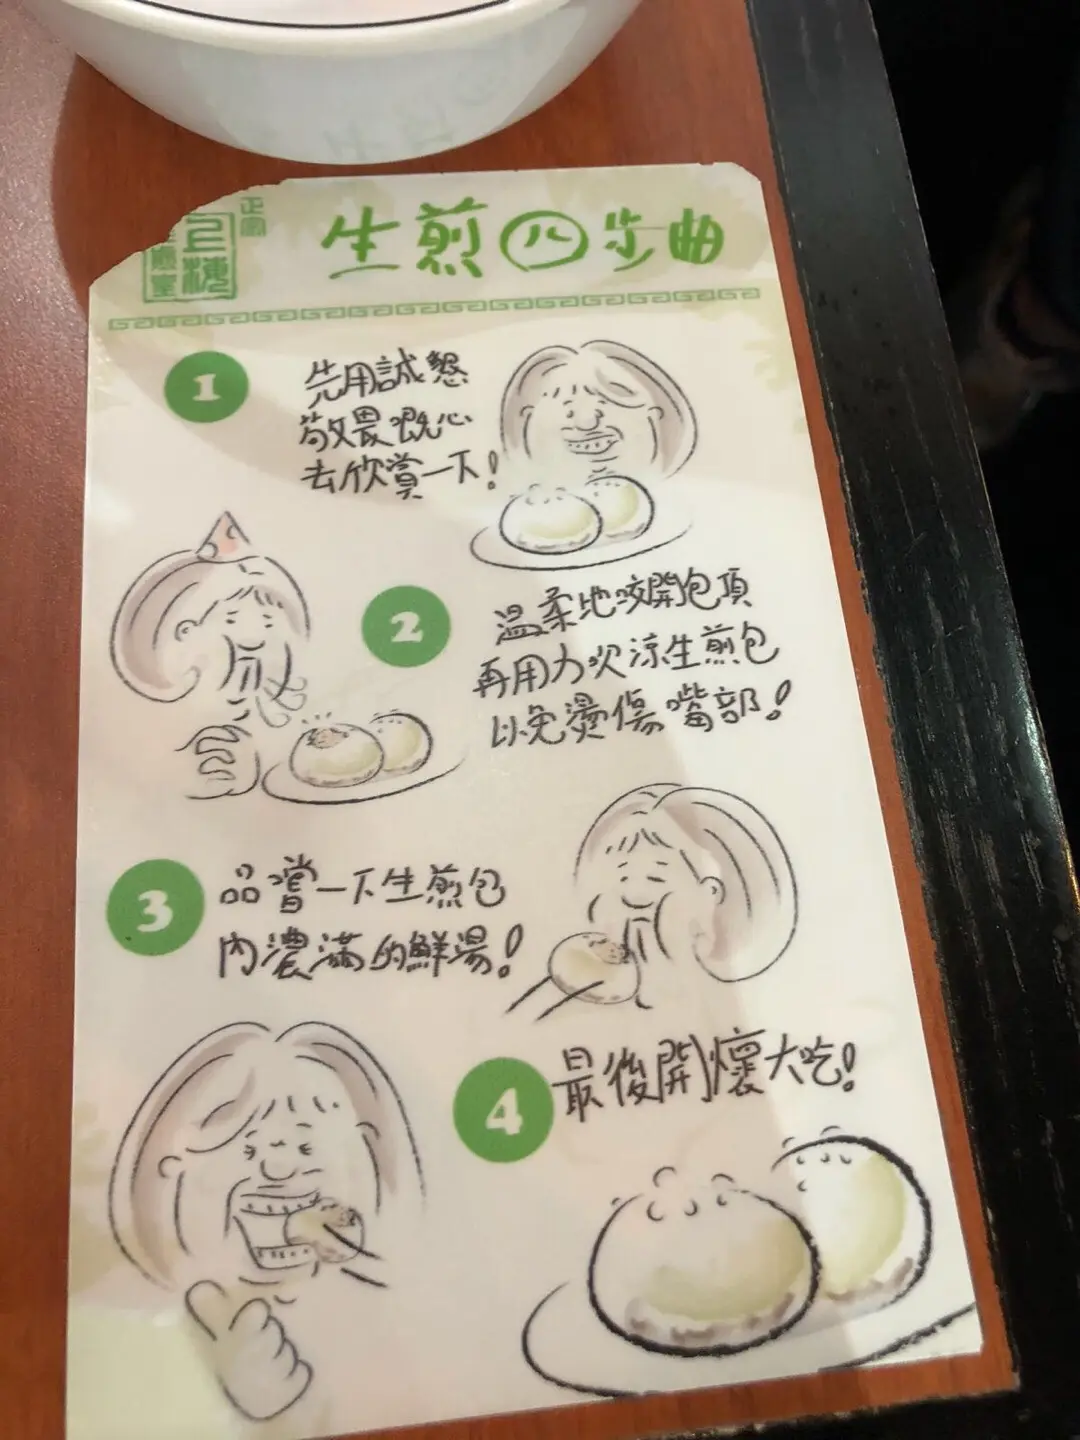 正宗
生煎四步曲
1
先用誠懇
敬畏嘅心
去欣賞一下!
2
溫柔地咬開包頂
再用力吹涼生煎包
以免燙傷嘴部!
3
品嚐一下生煎包
內濃滿的鮮湯!
4
最後開懷大吃!